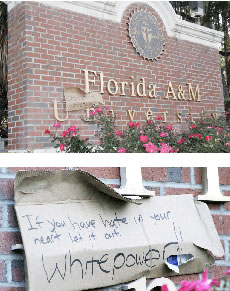 Florida A&M
University
If you have hate in your
heart let it out.
White power!!